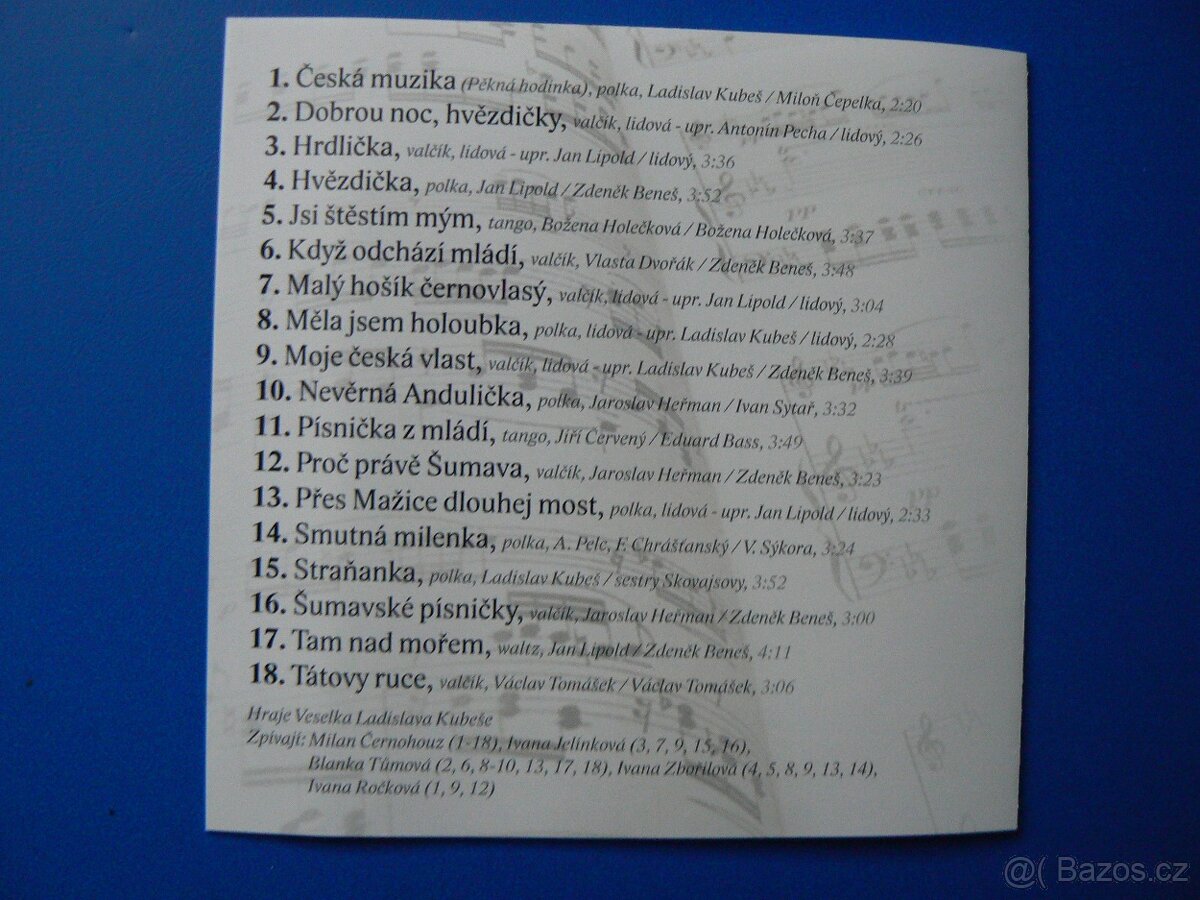 1. Česká muzika (Pěkná hodinka), polka, Ladislav Kubeš / Miloň Čepelka, 2:20
2. Dobrou noc, hvězdičky, valčík, lidová - upr. Antonín Pecha / lidový, 2:26
3. Hrdlička, valčík, lidová - upr. Jan Lipold / lidový, 3:36
4. Hvězdička, polka, Jan Lipold / Zdeněk Beneš, 3:52
5. Jsi štěstím mým, tango, Božena Holečková / Božena Holečková, 3:37
6. Když odchází mládí, valčík, Vlasta Dvořák / Zdeněk Beneš, 3:48
7. Malý hošík černovlasý, valčík, lidová - upr. Jan Lipold / lidový, 3:04
8. Měla jsem holoubka, polka, lidová - upr. Ladislav Kubeš / lidový, 2:28
9. Moje česká vlast, valčík, lidová - upr. Ladislav Kubeš / Zdeněk Beneš, 3:39
10. Nevěrná Andulička, polka, Jaroslav Heřman / Ivan Sytař, 3:32
11. Písnička z mládí, tango, Jiří Červený / Eduard Bass, 3:49
12. Proč právě Šumava, valčík, Jaroslav Heřman / Zdeněk Beneš, 3:23
13. Přes Mažice dlouhej most, polka, lidová - upr. Jan Lipold / lidový, 2:33
14. Smutná milenka, polka, A. Pelc, F. Chrášťanský / V. Sýkora, 3:24
15. Straňanka, polka, Ladislav Kubeš / sestry Skovajsovy, 3:52
16. Šumavské písničky, valčík, Jaroslav Heřman / Zdeněk Beneš, 3:00
17. Tam nad mořem, waltz, Jan Lipold / Zdeněk Beneš, 4:11
18. Tátovy ruce, valčík, Václav Tomášek / Václav Tomášek, 3:06
Hraje Veselka Ladislava Kubeše
Zpívají: Milan Černohouz (1-18), Ivana Jelínková (3, 7, 9, 15, 16),
Blanka Tůmová (2, 6, 8-10, 13, 17, 18), Ivana Zbořilová (4, 5, 8, 9, 13, 14),
Ivana Ročková (1, 9, 12)
@( Bazos.cz